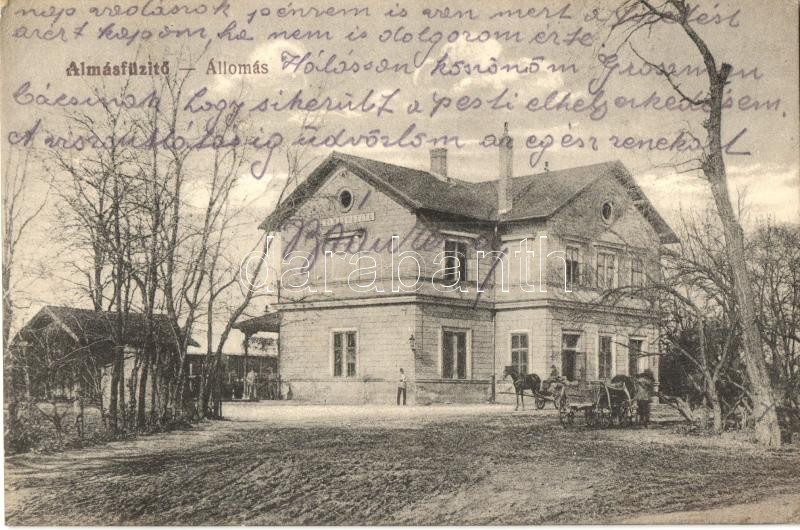 nap vadások pénrem is van mert a
azért kapom, ha nem is dolgozom érte.
Almásfüzitő – Állomás Hálásan könönöm Grosman
bácsinak hogy sikerült a pesti elhelyezkedésem.
A viszontlátásig üdvözlöm az egész zenekart
darabanth